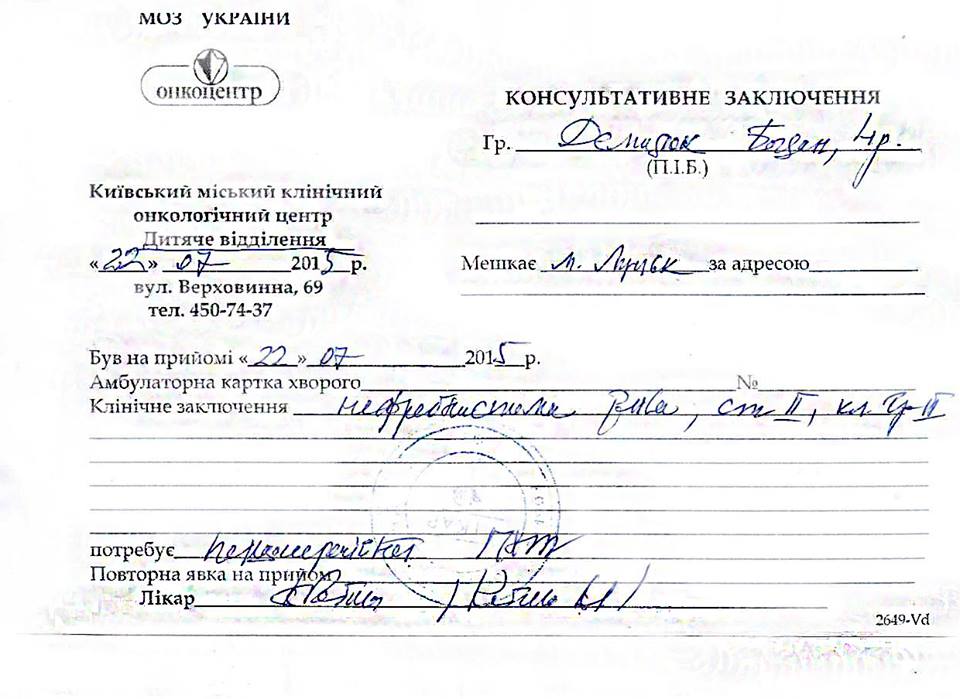 МОЗ УКРАЇНИ
ОНКОЦЕНТР
КОНСУЛЬТАТИВНЕ ЗАКЛЮЧЕННЯ
Гр. Демидюк Богдан, 4р.
(П.І.Б.)
Київський міський клінічний
онкологічний центр
Дитяче відділення
«22» 07 2015 р.
вул. Верховинна, 69
тел. 450-74-37
Мешкає м. Луцьк за адресою
Був на прийомі «22» 07 2015 р.
Амбулаторна картка хворого №
Клінічне заключення нефробластома, ст II, кл. гр II
потребує ПХТ
Повторна явка на прийом
Лікар
2649-Vd